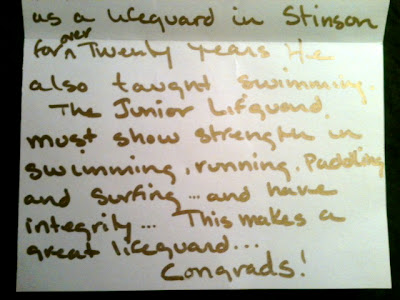 as a liceguard in Stinson
for ^over Twenty years He
also taught swimming.
The Junior Lifguard
must show strength in
swimming, running, Paddling
and surfing... and have
integrity... This makes a
great liceguard...
Congrads!